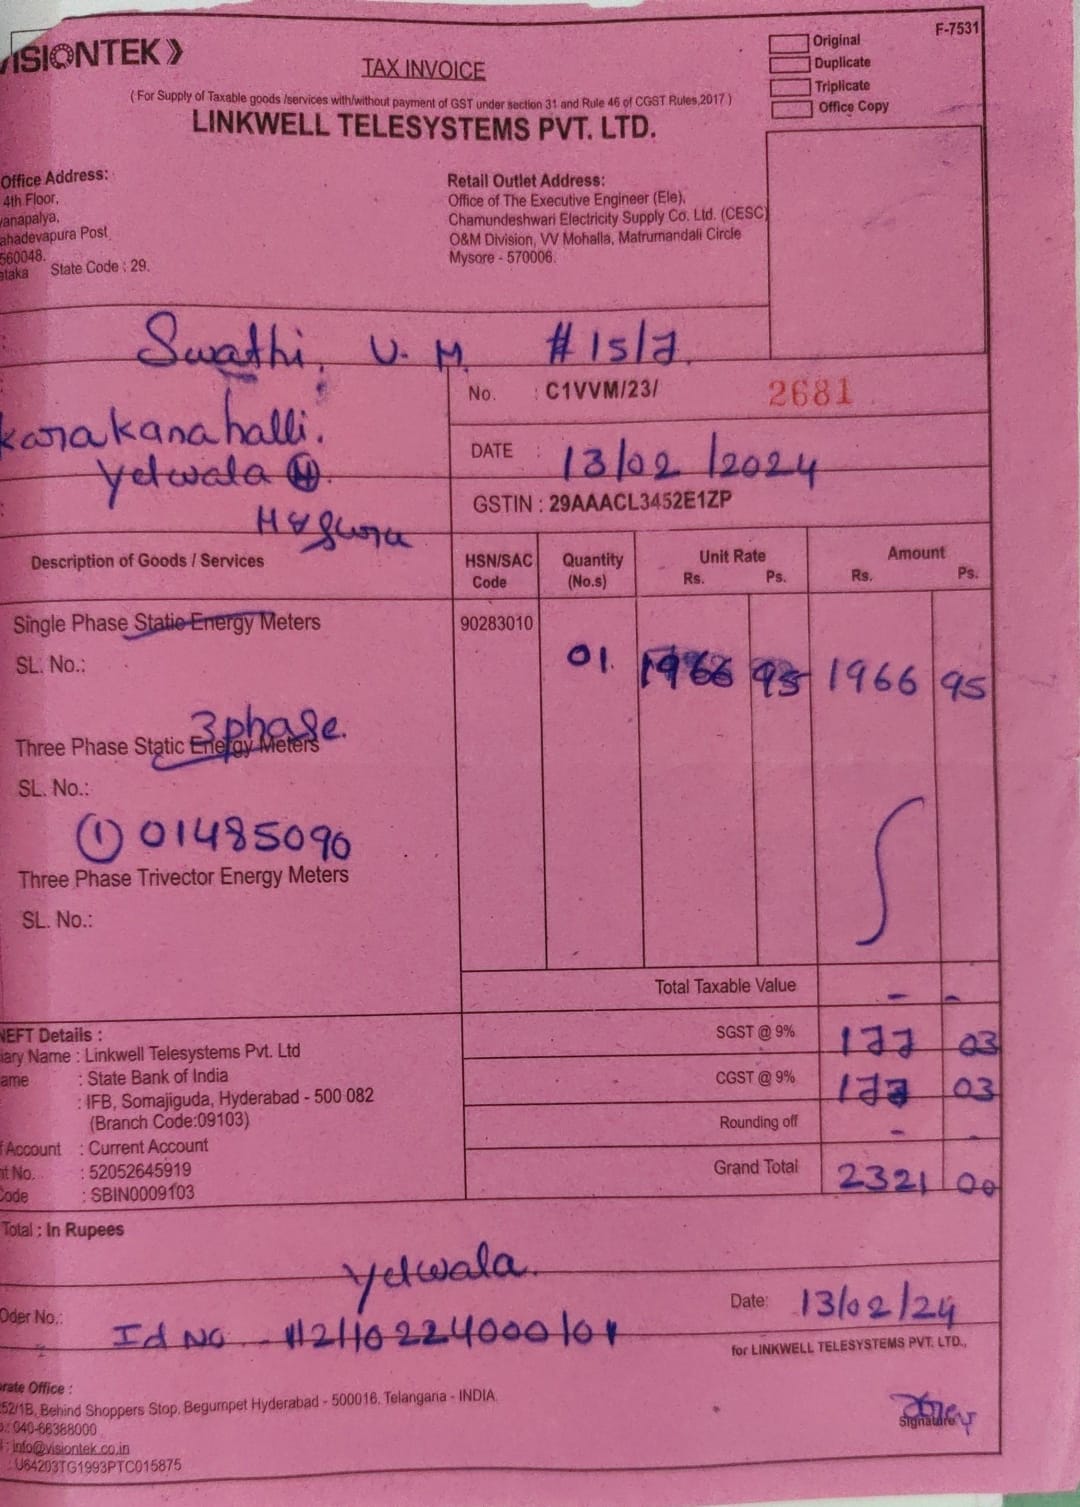 VISIONTEK
TAX INVOICE
Original
Duplicate
Triplicate
Office Copy
F-7531
( For Supply of Taxable goods /services with/without payment of GST under section 31 and Rule 46 of CGST Rules,2017 )
LINKWELL TELESYSTEMS PVT. LTD.
Office Address:
4th Floor,
anapalya,
ahadevapura Post
560048.
ataka State Code : 29.
Retail Outlet Address:
Office of The Executive Engineer (Ele),
Chamundeshwari Electricity Supply Co. Ltd. (CESC)
O&M Division, VV Mohalla, Matrumandali Circle
Mysore - 570006.
Swathi, U. M. # 15/7
karakanahalli.
yelwala (H).
No. : C1VVM/23/ 2681
DATE : 13/02/2024
GSTIN : 29AAACL3452E1ZP
Description of Goods / Services
HSN/SAC Code
Quantity (No.s)
Unit Rate Rs. Ps.
Amount Rs. Ps.
Single Phase Static Energy Meters 90283010
SL. No.: 01. 1966 95 1966 95
3 phase.
Three Phase Static Energy Meters
SL. No.:
① 01485090
Three Phase Trivector Energy Meters
SL. No.:
Total Taxable Value - -
NEFT Details :
iary Name : Linkwell Telesystems Pvt. Ltd
ame : State Bank of India
: IFB, Somajiguda, Hyderabad - 500 082
(Branch Code:09103)
f Account : Current Account
nt No. : 52052645919
Code : SBIN0009103
SGST @ 9% 177 03
CGST @ 9% 177 03
Rounding off - -
Grand Total 2321 00
Total : In Rupees
yelwala.
Oder No.:
Id No -
Date: 13/02/24
for LINKWELL TELESYSTEMS PVT. LTD.,
Signature
rate Office :
52/1B, Behind Shoppers Stop, Begumpet Hyderabad - 500016. Telangana - INDIA
: 040-66388000
: info@visiontek.co.in
: U64203TG1993PTC015875